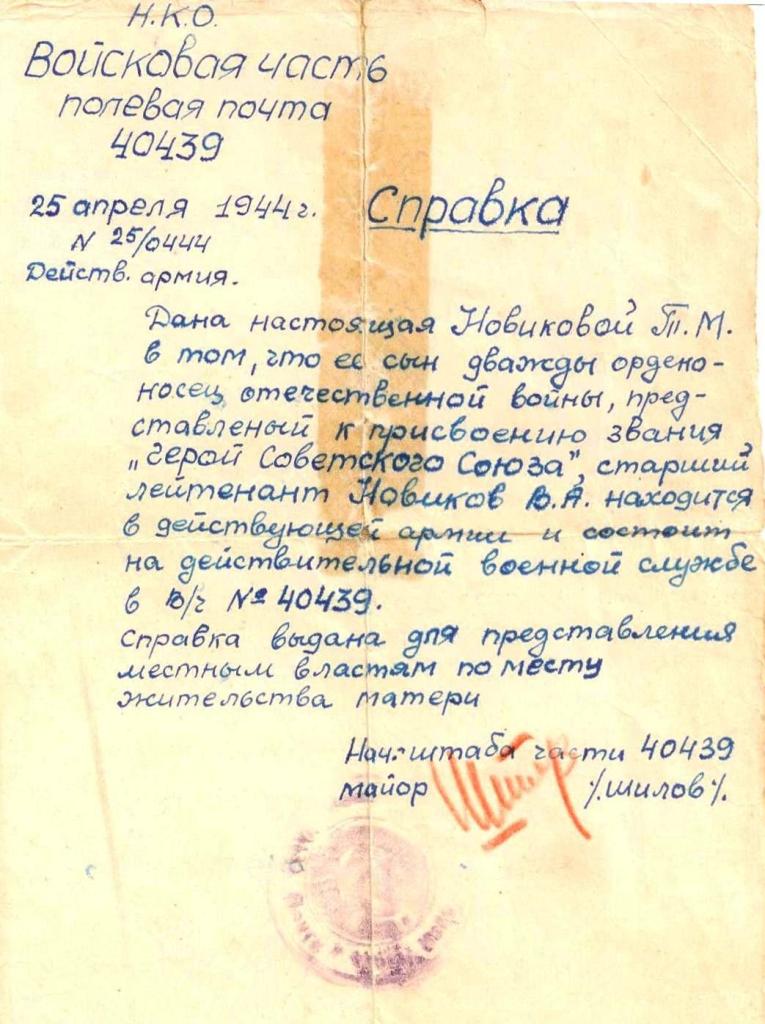 Н.К.О.
Войсковая часть
полевая почта
40439
25 апреля 1944г. Справка
N 25/0444
Действ. армия.
Дана настоящая Новиковой Т.М.
в том, что ее сын дважды ордено-
носец отечественной войны, пред-
ставленый к присвоению звания
„Герой Советского Союза", старший
лейтенант Новиков В.А. находится
в действующей армии и состоит
на действительной военной службе
в в/ч № 40439.
Справка выдана для представления
местным властям по месту
жительства матери
Нач. штаба части 40439
майор /.Шилов/.